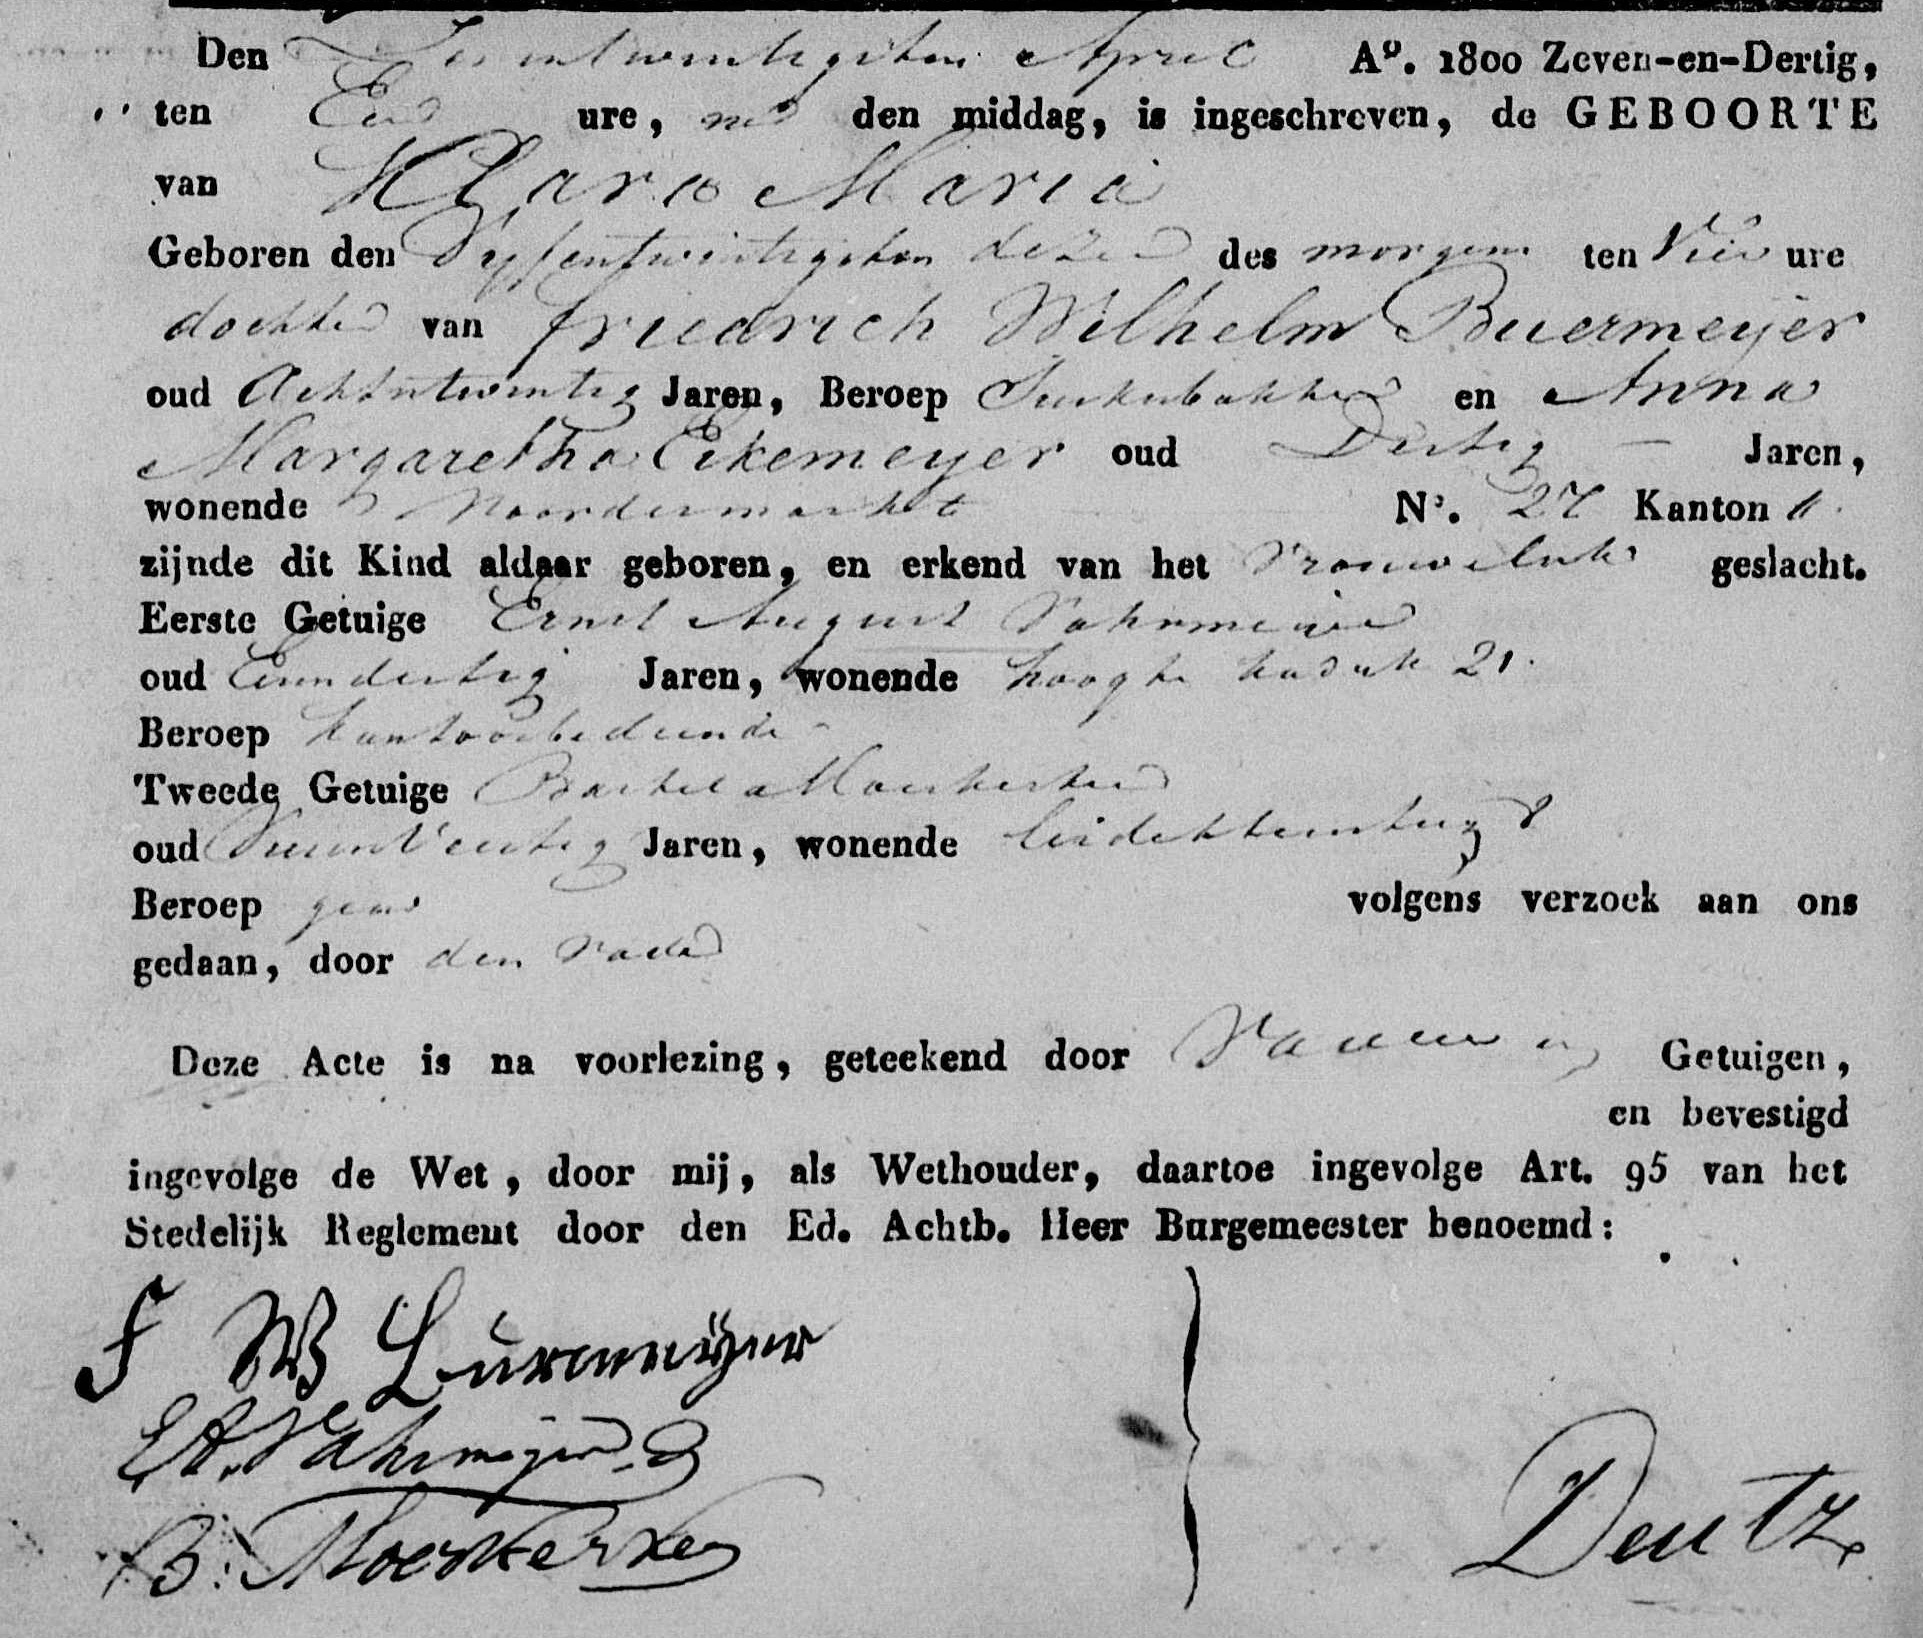 Den Zesentwintigsten April Aº. 1800 Zeven-en-Dertig,
ten Een ure, na den middag, is ingeschreven, de GEBOORTE
van Klara Maria
Geboren den Vyfentwintigsten dezer des morgens ten Vier ure
dochter van Friedrich Wilhelm Buermeyer
oud Achtentwintig Jaren, Beroep Suikerbakker en Anna
Margaretha Eikemeyer oud Dertig Jaren,
wonende Noordermarkt Nº. 27 Kanton
zijnde dit Kind aldaar geboren, en erkend van het Vrouwelijke geslacht.
Eerste Getuige Ernst August Vahrmeijer
oud Eenendertig Jaren, wonende hoogte kadijk 21.
Beroep kantoorbediende
Tweede Getuige Bartel Moerkerken
oud Jaren, wonende leidekkerssteeg 8
Beroep geen volgens verzoek aan ons
gedaan, door den Vader
Deze Acte is na voorlezing, geteekend door Vader en Getuigen,
en bevestigd
ingevolge de Wet, door mij, als Wethouder, daartoe ingevolge Art. 95 van het
Stedelijk Reglement door den Ed. Achtb. Heer Burgemeester benoemd:
F W Burmeijer
E A. Vahrmeijer
B: Moerkerken
Deutz